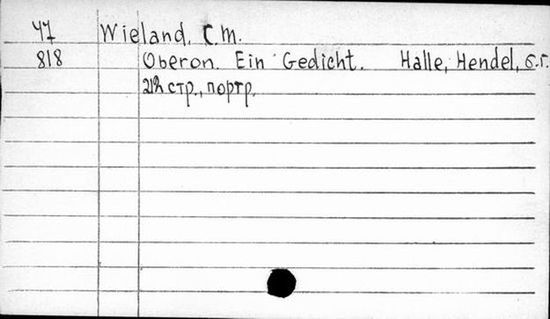 47 Wieland, C. M.
818 Oberon. Ein Gedicht. Halle, Hendel, б.г.
стр., портр.